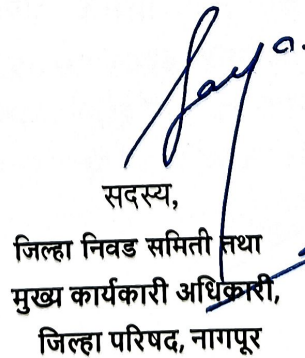 सदस्य,
जिल्हा निवड समिती तथा
मुख्य कार्यकारी अधिकारी,
जिल्हा परिषद, नागपूर